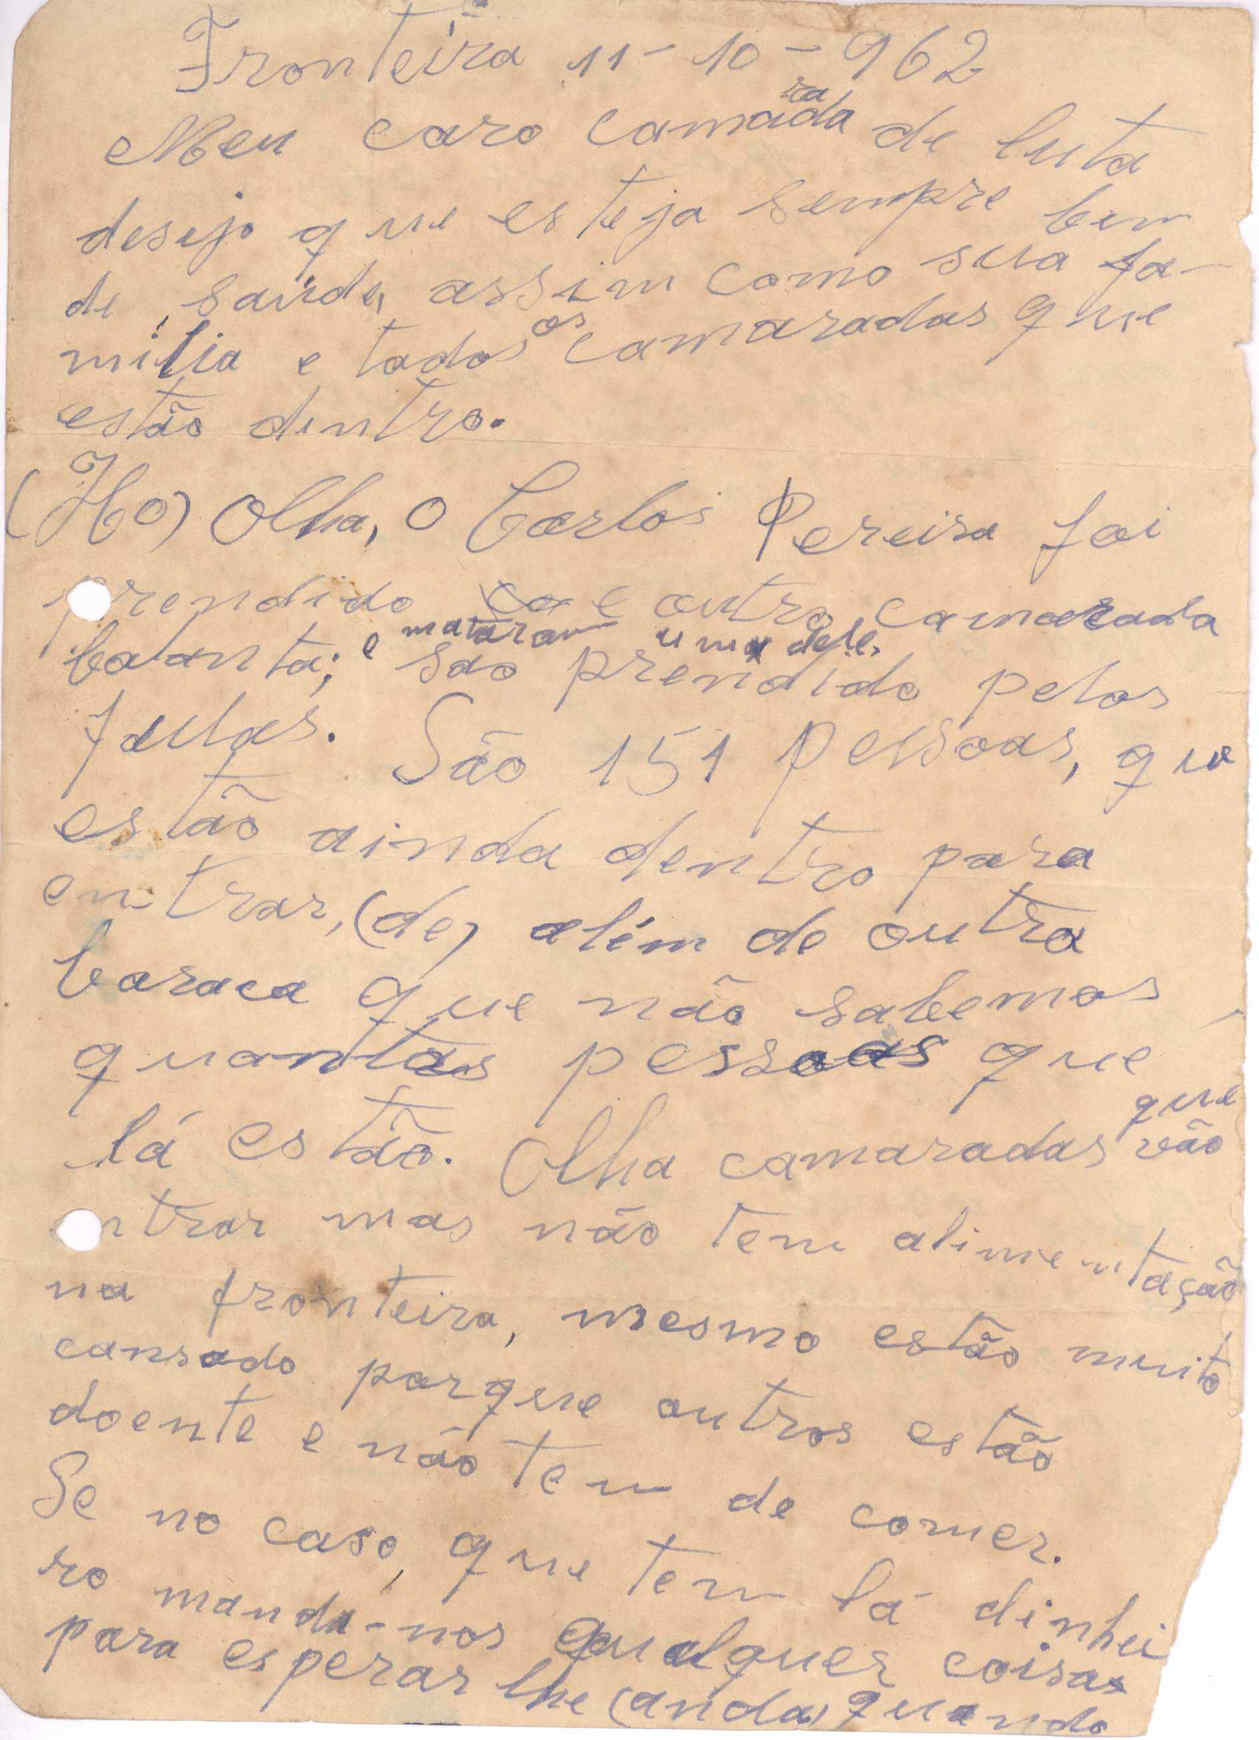 Fronteira 11-10-962
Meu caro camarada de luta
desejo que esteja sempre bem
de saúde, assim como sua fa-
mília e todos os camaradas que
estão dentro.
(Ho) Olha, o Carlos Pereira foi
prendido e outro camarada
baanta; e mataram uma dele.
são prendido pelos
fulas. São 151 pessoas, que
estão ainda dentro para
entrar, (de) além de outra
baraca que não sabemos
quantas pessoas que
lá estão. Olha camaradas que vão
entrar mas não tem alimentação
na fronteira, mesmo estão muito
cansado porque outros estão
doente e não tem de comer.
Se no caso, que tem lá dinhei
ro manda-nos qualquer coisas
para esperar lhe (anda) quando